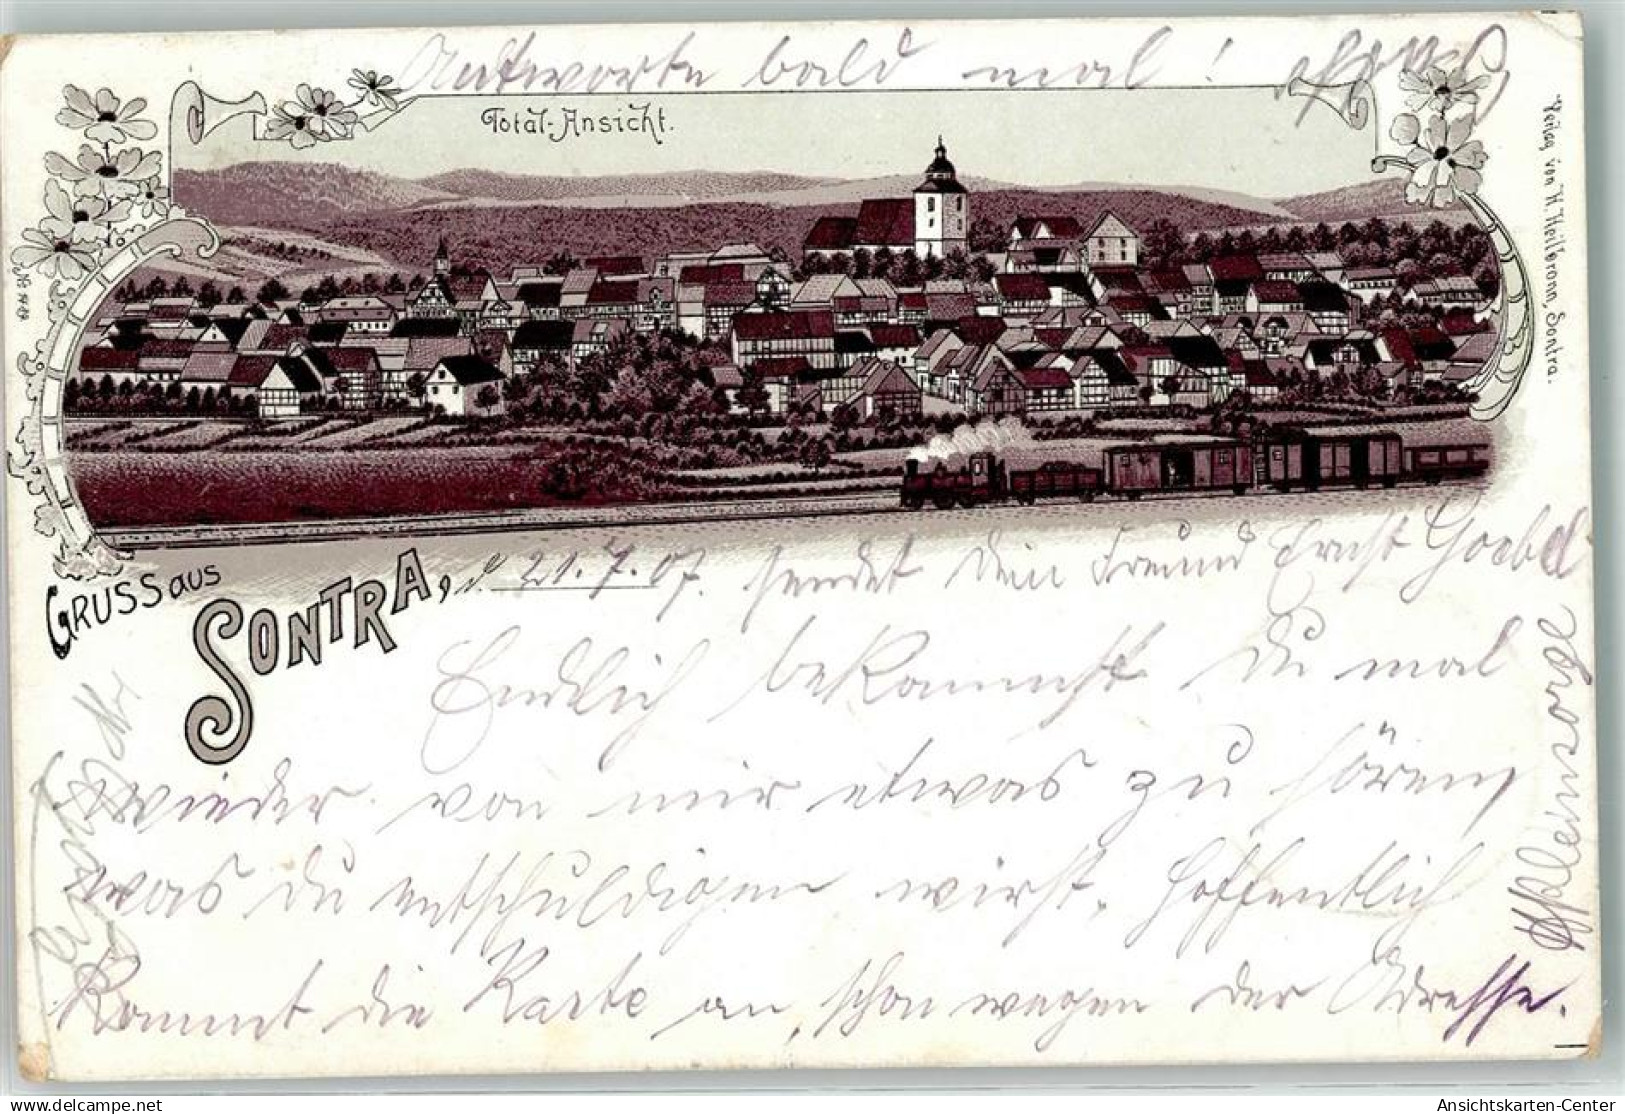 Antworte bald mal!
Total-Ansicht.
Verlag von H. Heilbronn, Sontra.
GRUSS aus
SONTRA, d. 21.7.07. sendet Dein Freund Ernst Goebel
Endlich bekommst Du mal
wieder von mir etwas zu hören,
was Du entschuldigen wirst. Hoffentlich
kommt die Karte an, schon wegen der Adresse.
delcampe.net
Ansichtskarten-Center